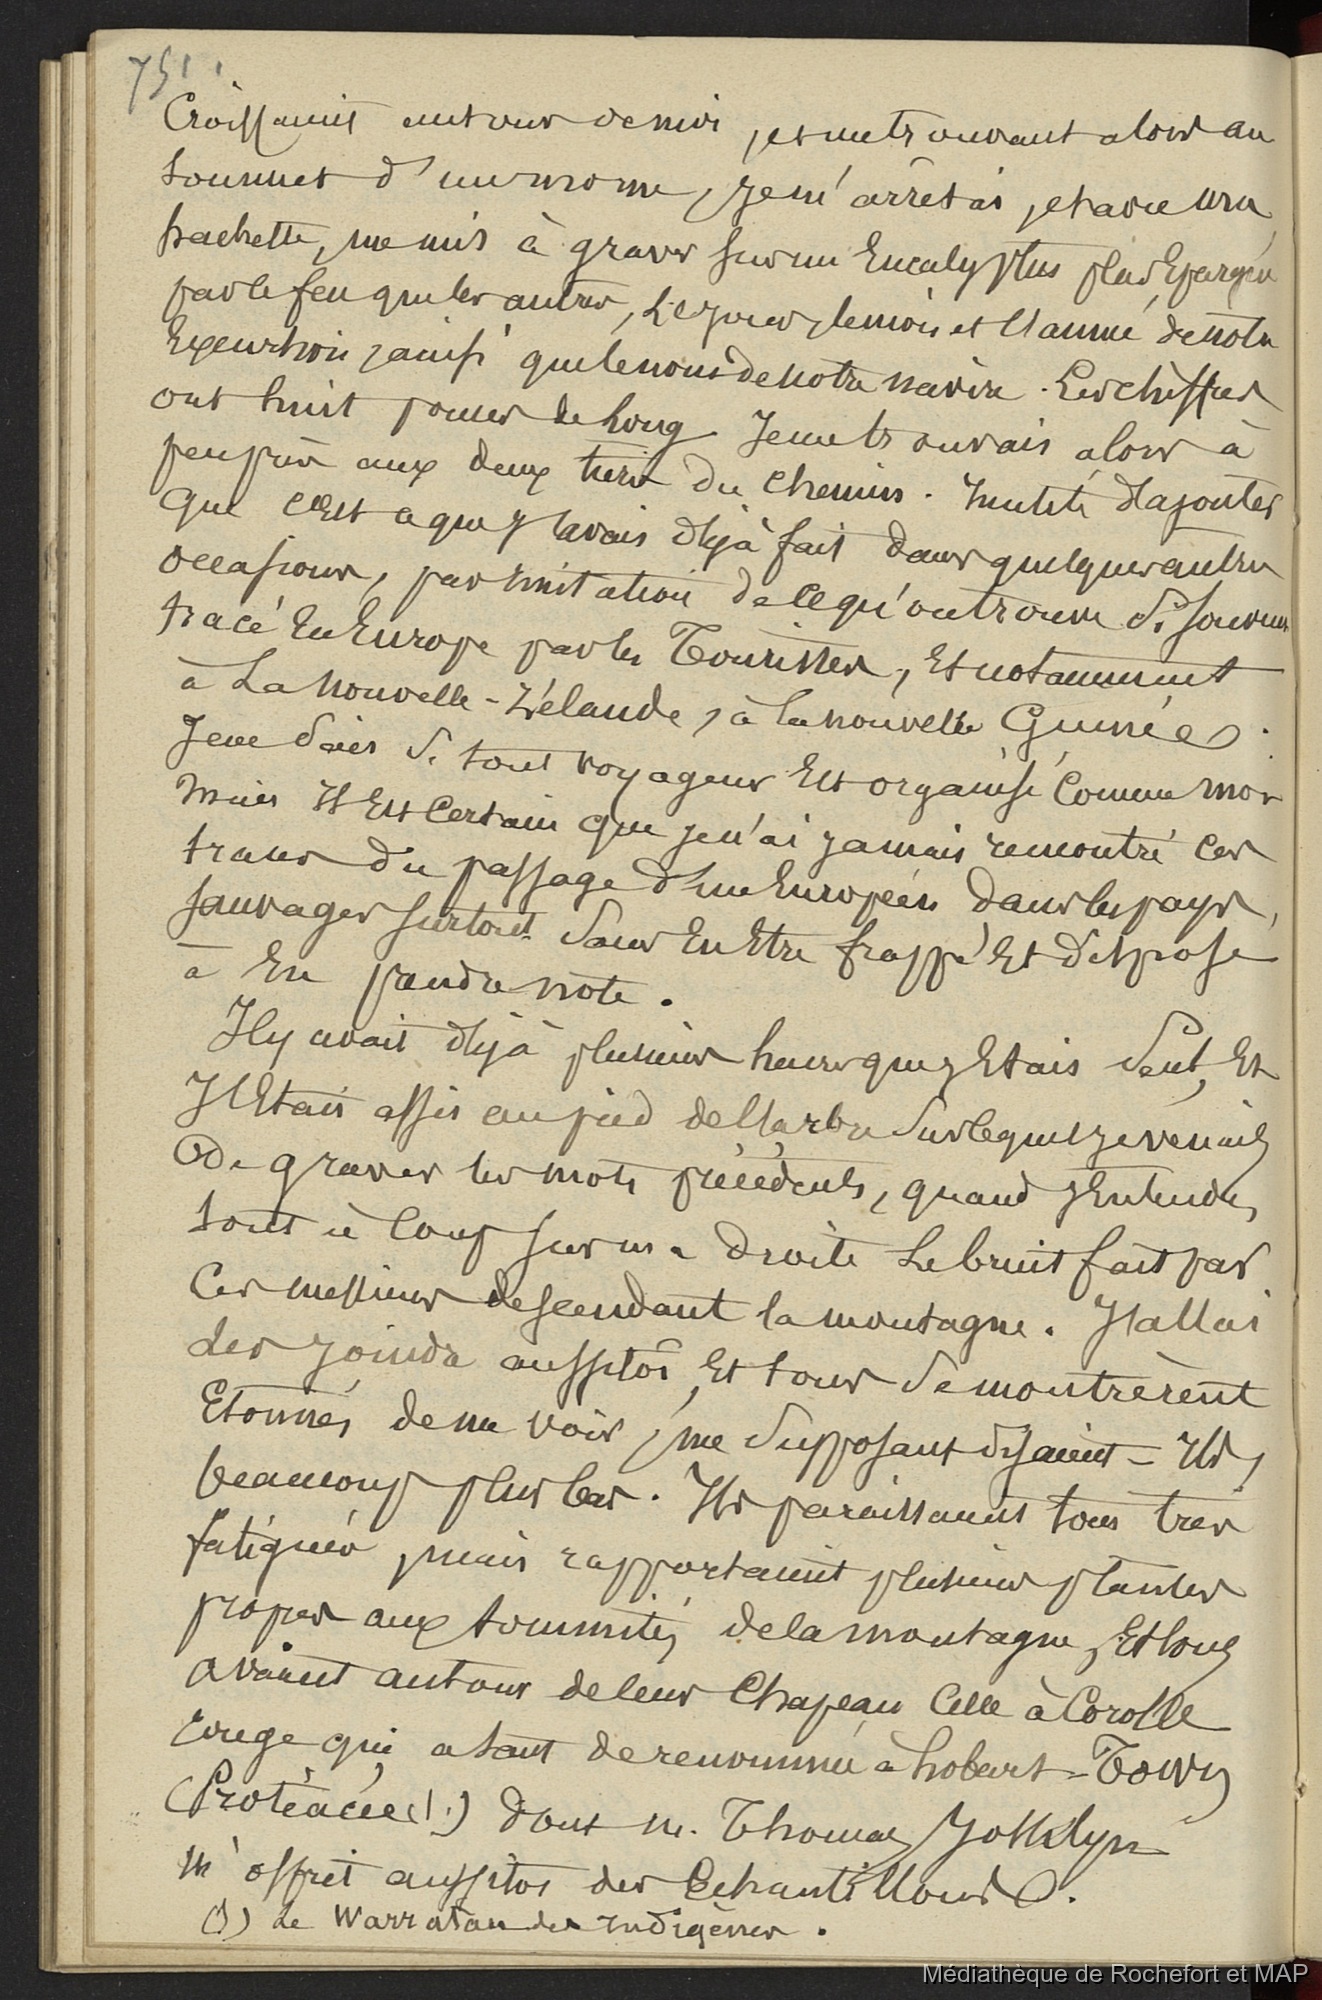 751
Croissaient autour de moi, et me trouvant alors au
sommet d'un morne, je m'arrêtai, et avec une
hachette, me mis à graver sur un Eucalyptus plus Epargné
par le feu que les autres, Le jour, le mois et l'année de notre
Excursion, ainsi que le nom de notre navire. Les chiffres
ont huit pouces de long. Je me trouvais alors à
peu près aux deux tiers du Chemin. Inutile d'ajouter
que c'Est ce que j'avais déjà fait dans quelques autres
occasions, par imitation de ce qu'on trouve si souvent
tracé En Europe par les Touristes, Et notamment
à La nouvelle-Zélande, à la nouvelle Guinée.
Je ne sais si tout voyageur Est organisé Comme moi
mais Il Est Certain que je n'ai jamais rencontré ces
traces du passage d'un Européen dans les pays
sauvages surtout sans En Etre frappé Et disposé
à En prendre note.
Il y avait déjà plusieurs heures que j'Etais seul, Et
J'Etais assis au pied de l'arbre sur lequel je venais
de graver les mots précédents, quand j'Entendis
tout à Coup sur ma droite Le bruit fait par
Ces messieurs descendant la montagne. J'allai
les joindre aussitôt, Et tous se montrèrent
Etonnés de me voir, me supposant disaient-Ils,
beaucoup plus bas. Ils paraissaient tous très
fatigués, mais rapportaient plusieurs plantes
propres aux sommités de la montagne, Et tous
avaient autour de leur Chapeau Celle à Corolle
rouge qui a tant de renommée à hobart-Town
(Protéacée (1.) dont M. Thomas
m'offrit aussitôt des Echantillons.
(1) Le Warratau des Indigènes.
Médiathèque de Rochefort et MAP